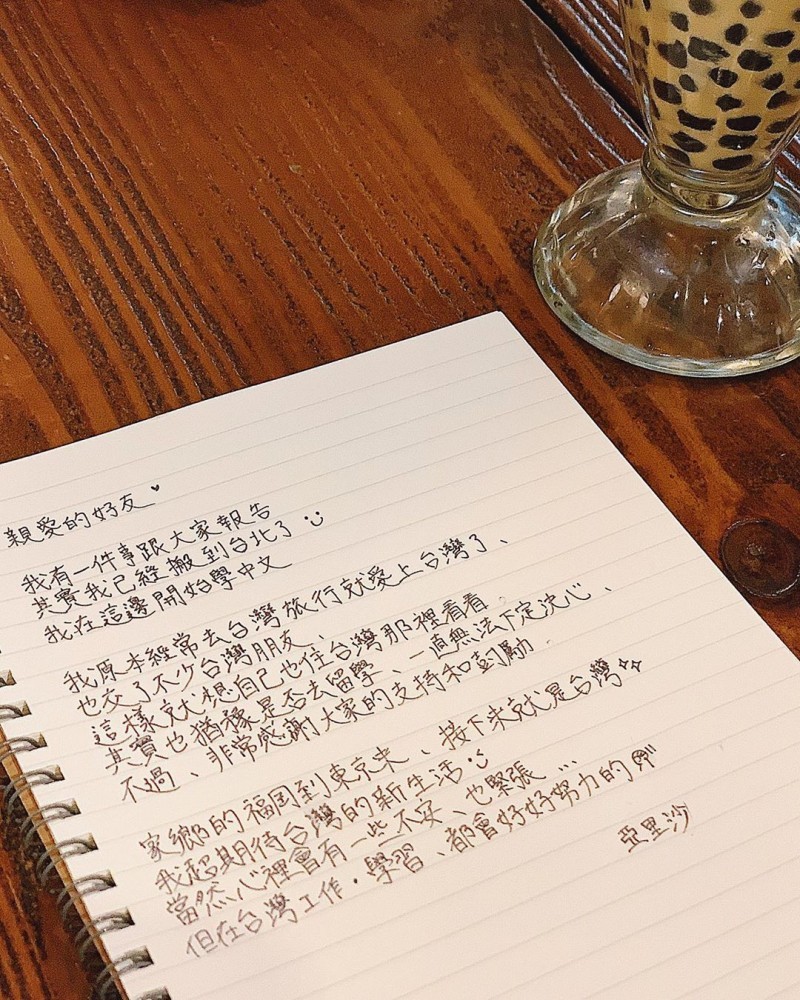 親愛的好友♥
我有一件事跟大家報告
其實我已經搬到台北了
我在這邊開始學中文
我原本經常去台灣旅行就愛上台灣了、
也交了不少台灣朋友、
這樣就想自己也住台灣那裡看看
其實也猶豫是否去留學、一直無法下定決心、
不過、非常感謝大家的支持和鼓勵.
家鄉的福岡到東京来、接下来就是台灣
我超期待台灣的新生活.
當然心裡會有一些不安、也緊張...
但在台灣工作.學習、都會好好努力的
亞里沙